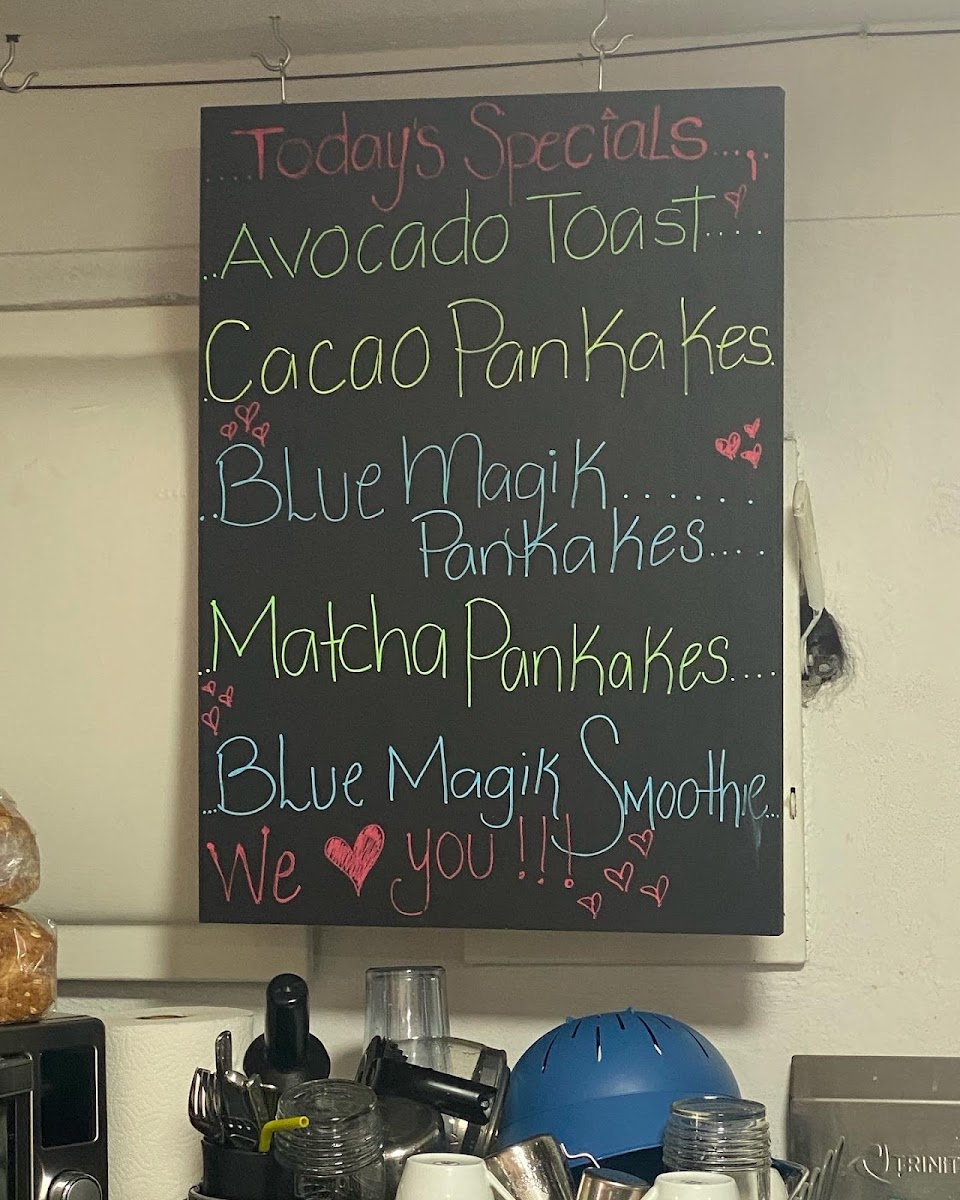 ....Today's Specials....
..Avocado Toast....
.Cacao Pankakes.
..Blue Magik.......
Pankakes....
..Matcha Pankakes....
...Blue Magik Smoothie...
We ♥ you!!!
TRINIT